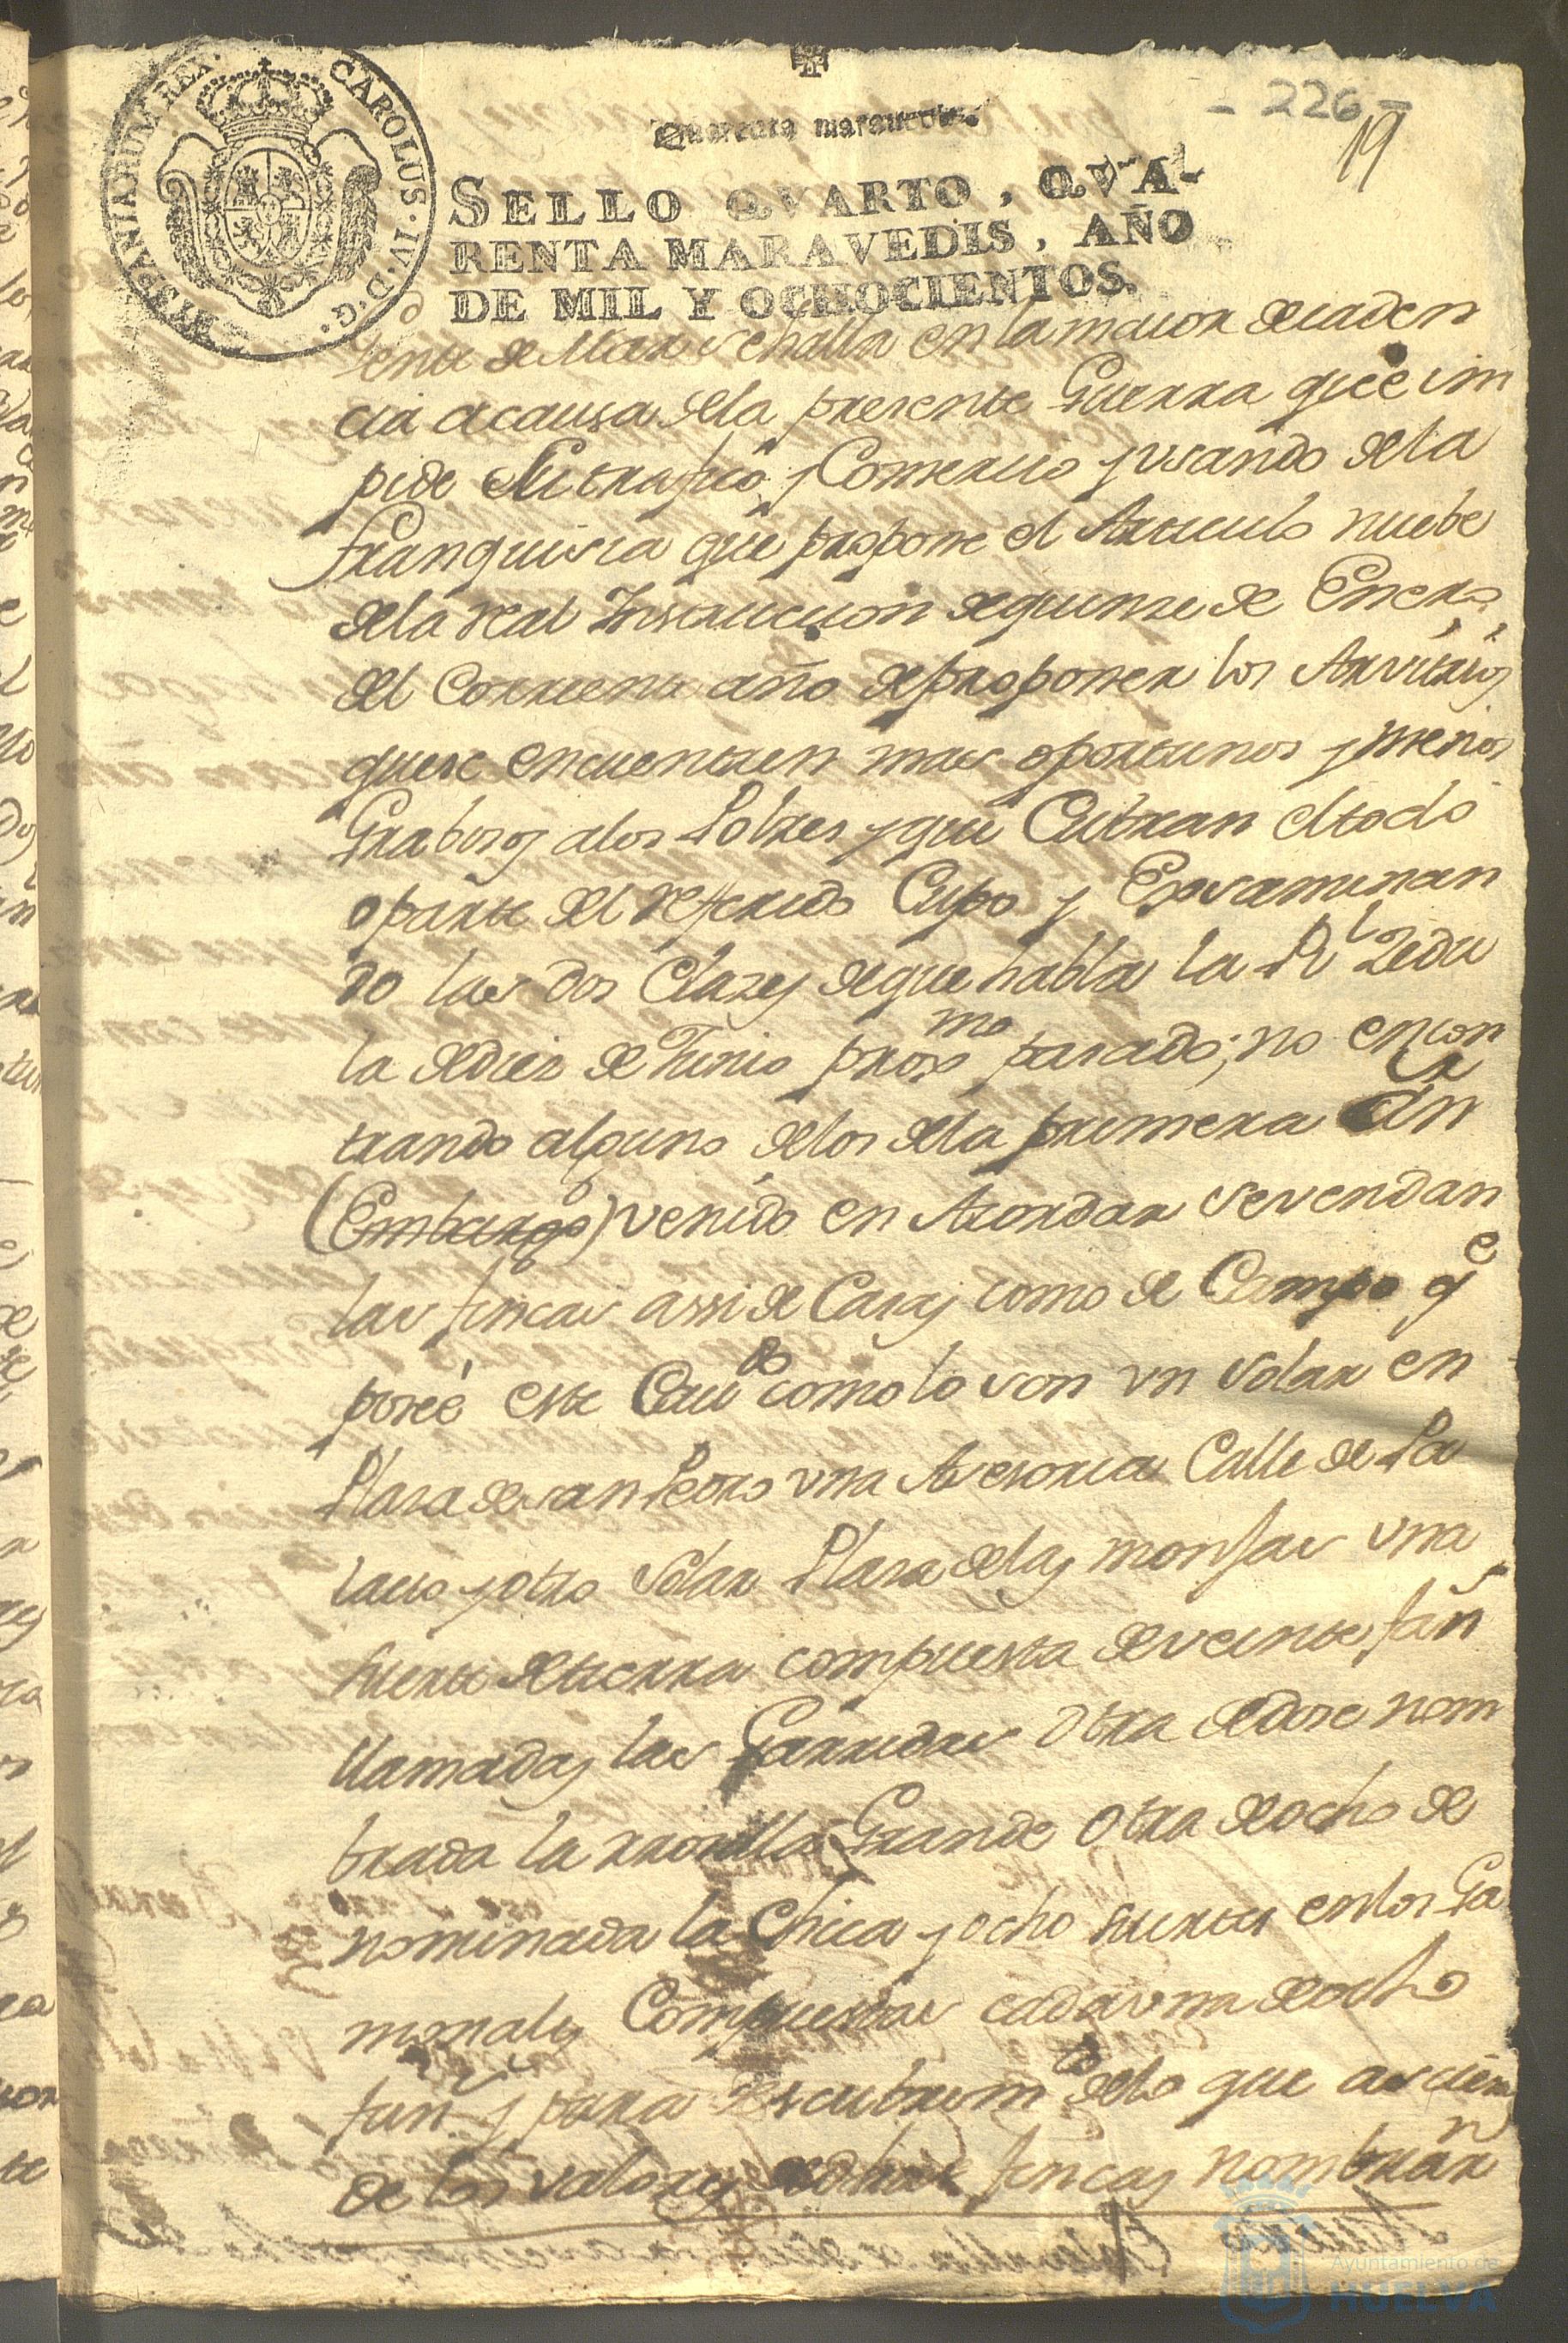 - 226 -
19
Quarenta maravedis.
SELLO QVARTO, QVA-
RENTA MARAVEDIS, AÑO
DE MIL Y OCHOCIENTOS.
CAROLUS·IV·D·G· HISPANIAR REX
de Mar se halla en la maior decaden
cia a causa dela presente Guerra que im
pide su trafico y Comercio y usando dela
franquisia que propone el Articulo nuebe
dela real Instruccion de quinse de Enero
del Corriente año de proponer los Arvitrios
que se encuentren mas oportunos y menos
Grabosos alos Pobres y que Cubran el todo
o parte del referido Cupo y Exsaminan
do las dos Clazes de que habla la Rl Zedu
la de dies de Junio proxmo pasado; no encon
trando alguno delos dela primera an
(Embargo) venido en Acordar se vendan
las fincas assi de Casas como de Campo qe
poseé este Caudo como lo son un solar en
Plasa de san Pedro una Acesoria Calle de Pa
lacio y otro solar Plasa delas monjas una
suerte de tierra compuesta de veinte fans
llamadas las Garridas otra de dose nom
brada la rrosilla Grande otra de ocho de
nominada la Chica y ocho suertes en los Ga
monales Compuestas cada una de ocho
fans y para descubrimto delo que ascien
de los valores de dhas fincas nombrarn
Ayuntamiento de
HUELVA